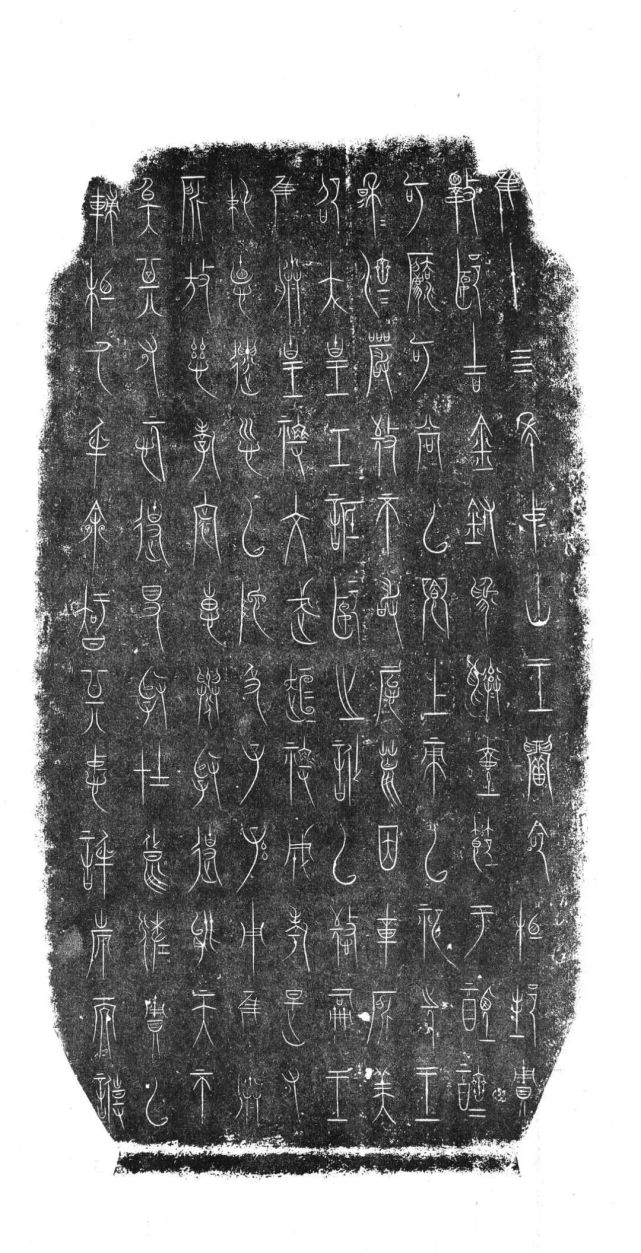 隹十四年中山王𰯼命相邦貯
斁郾吉金鑄爲彝壺節于醴齊
可灋可尚以饗上帝以祀先王
穆=濟=嚴敬不敢怠荒因載所美
卲大皇工詆郾之訛以憼嗣王
隹朕皇祖文武桓祖成考是又
純德遺訓以陀及子孫用隹朕
所放慈孝寰惠舉賢使能天不
斁其又願使得賢才良佐貯以
輔相厥身余智其忠信也而專